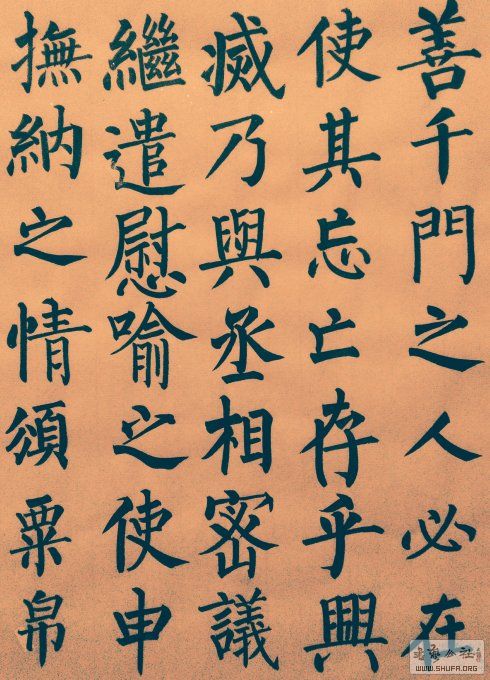 善千門之人必在
使其忘亡存乎興
滅乃與丞相密議
繼遣慰喻之使申
撫納之情頒粟帛
WWW.SHUFA.ORG